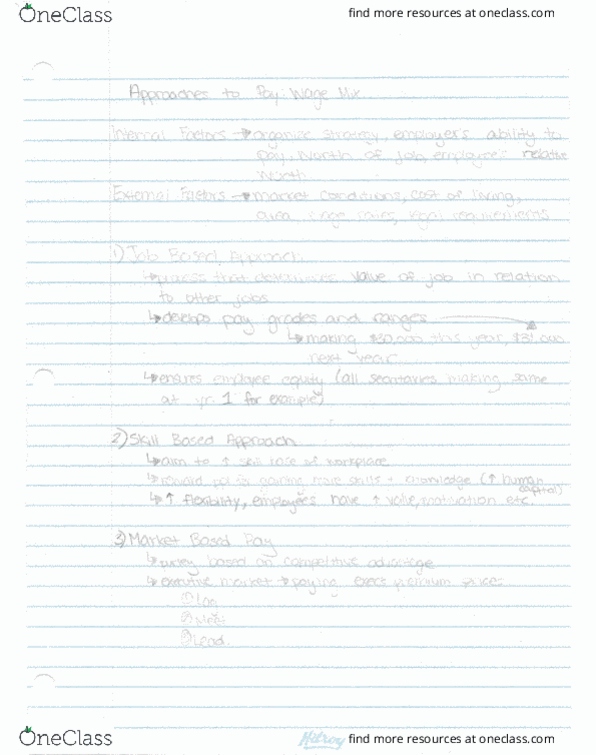 OneClass
find more resources at oneclass.com
Approaches to Pay: Wage Mix
Internal Factors → organize strategy, employer's ability to
pay, worth of job, employee's relative
worth
External Factors → market conditions, cost of living,
area wage rates, legal requirements
1) Job Based Approach
↳ process that determines value of job in relation
to other jobs
↳ develop pay grades and ranges →
↳ making $30,000 this year,
next year
↳ ensures employee equity (all secretaries making same
at yr. 1 for example)
2) Skill Based Approach
↳ aim to ↑ skill base of workplace
↳ reward ppl for gaining more skills + knowledge (↑ human
capital)
↳ ↑ flexibility, employees have ↑ value, motivation etc.
3) Market Based Pay
↳ based on competitive advantage
↳ executive market → paying execs premium prices
① Lag
② Meet
③ Lead
OneClass
Hilroy
find more resources at oneclass.com